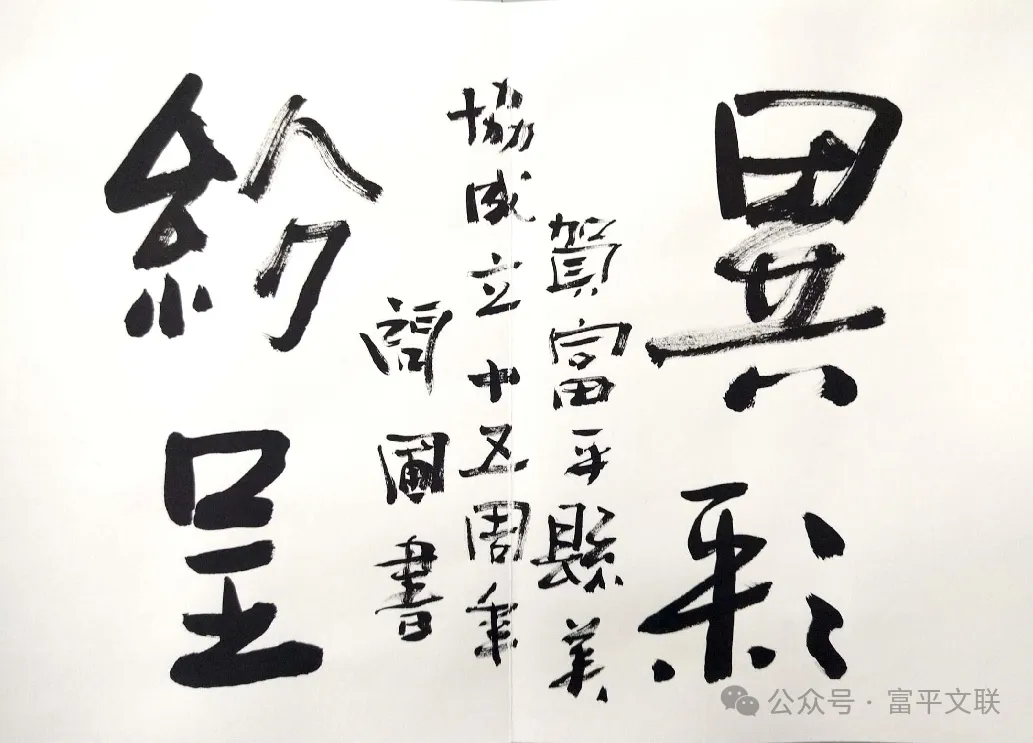 異彩
紛呈
賀富平縣美
協成立十五周年
圃書
公众号·富平文联